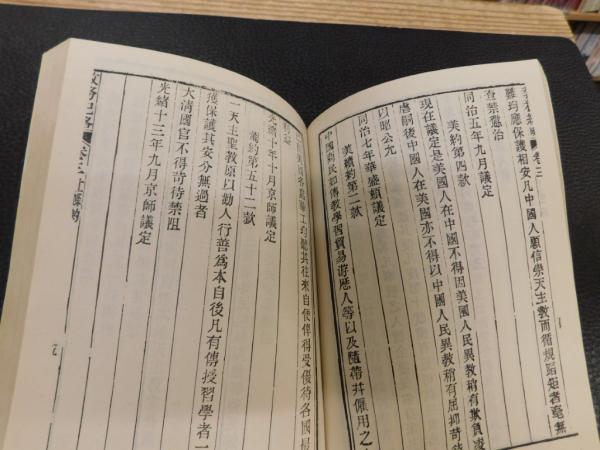 羅均應保護相安凡中國人願信崇天主教而循規蹈矩者毫無
查禁懲治
同治五年九月議定
美約第四款
現在議定是美國人在中國不得因美國人民異教稍有欺負凌
虐嗣後中國人在美國亦不得以中國人民異教稍有屈抑苛待
以昭公允
同治七年華盛頓議定
美續約第二款
中國商民如傳教學習貿易游歷人等以及隨帶并僱用之
工均聽其往來自便俾得受優待各國
光緒十年十月京師議定
葡約第五十二款
一天主聖教原以勸人行善為本自後凡有傳授習學者一
獲保護其安分無過者
大清國官不得苛待禁阻
光緒十三年九月京師議定
教務
卷三